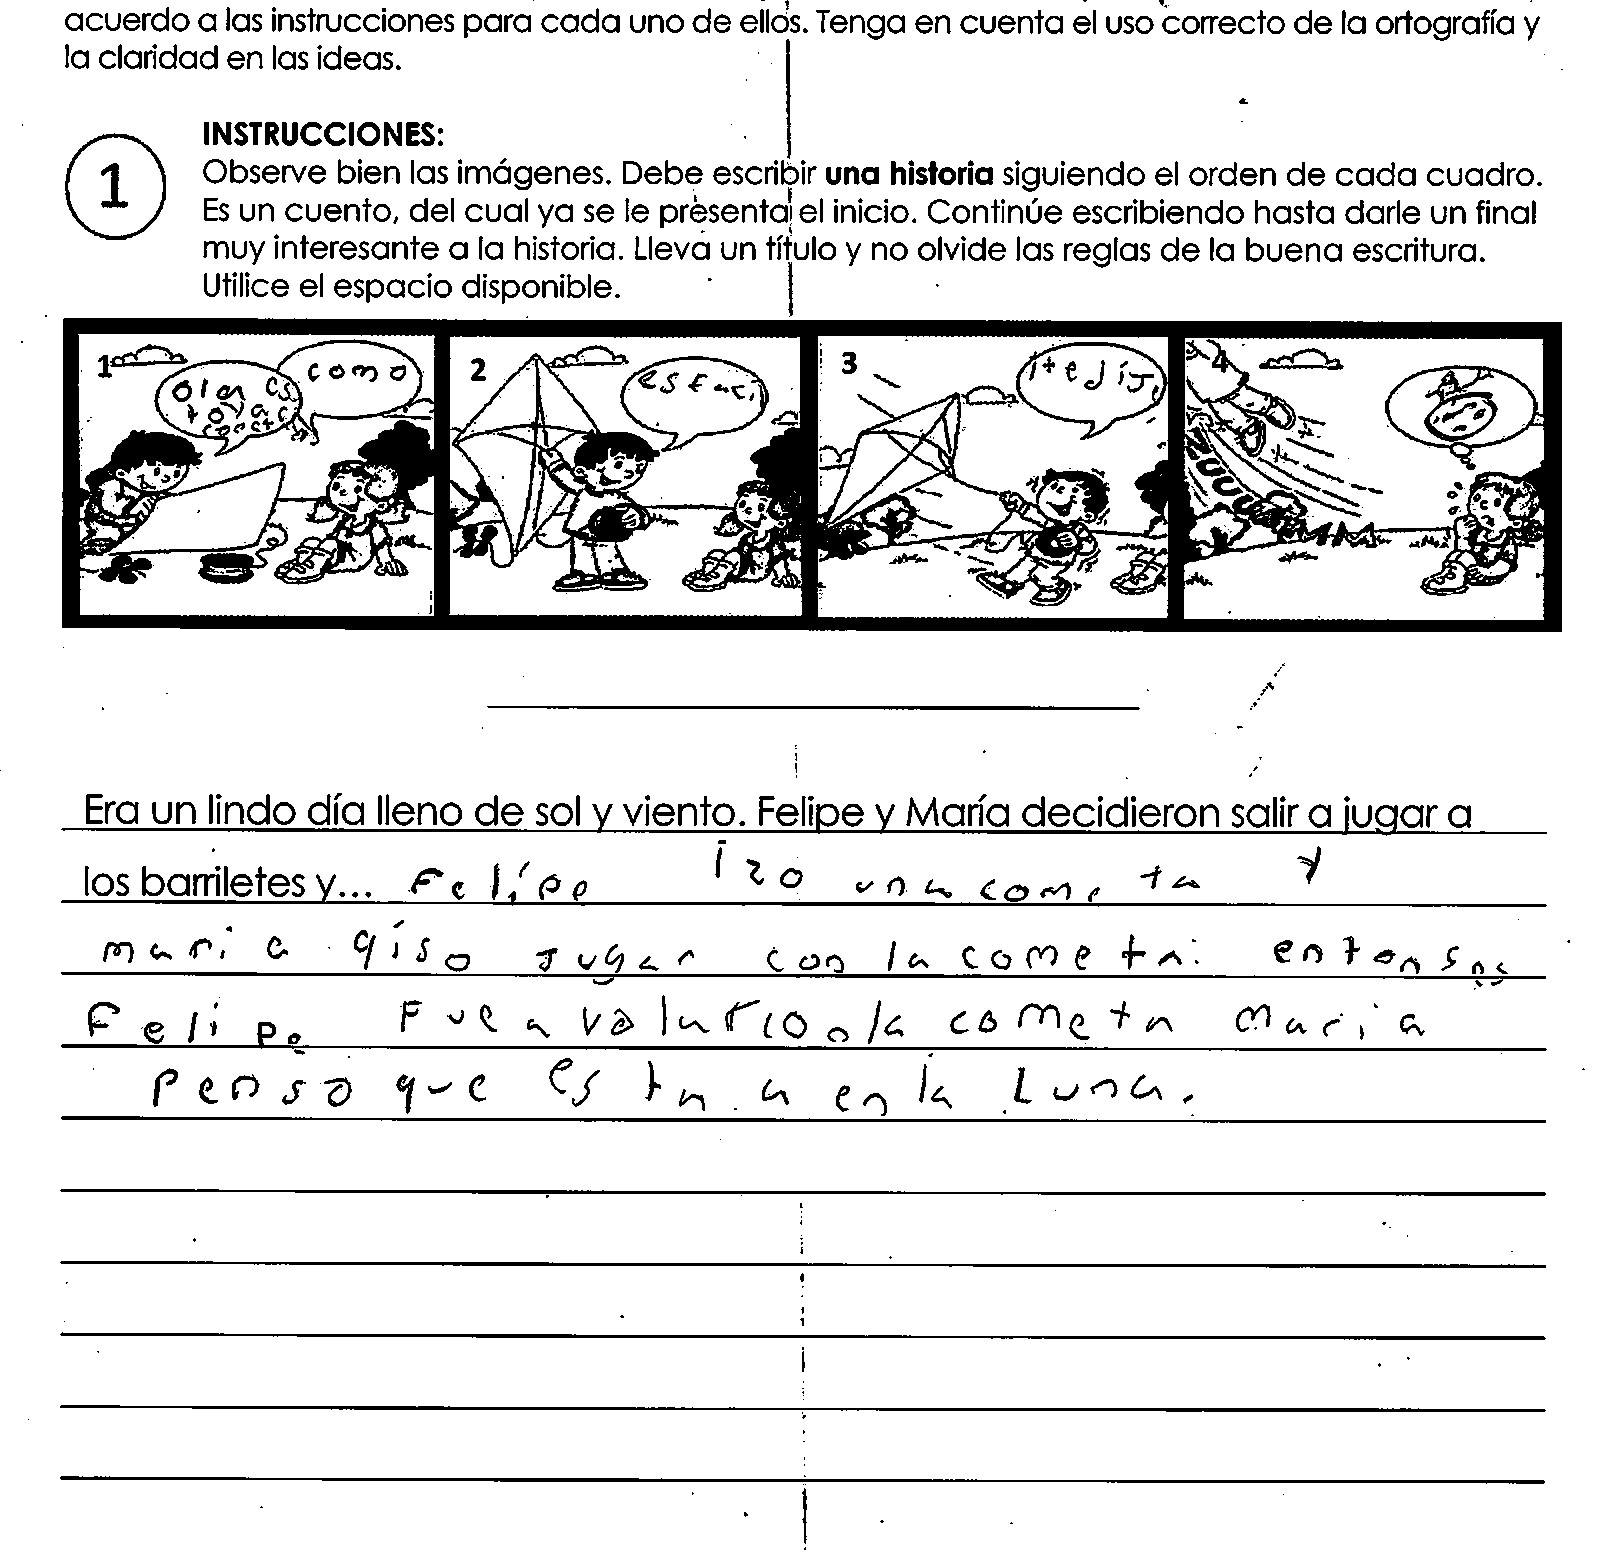 acuerdo a las instrucciones para cada uno de ellos. Tenga en cuenta el uso correcto de la ortografía y
la claridad en las ideas.
1
INSTRUCCIONES:
Observe bien las imágenes. Debe escribir una historia siguiendo el orden de cada cuadro.
Es un cuento, del cual ya se le presenta el inicio. Continúe escribiendo hasta darle un final
muy interesante a la historia. Lleva un título y no olvide las reglas de la buena escritura.
Utilice el espacio disponible.
1
como
2
3
4
Era un lindo día lleno de sol y viento. Felipe y María decidieron salir a jugar a
los barriletes y... Felipe izo una cometa y
maria qiso jugar con la cometa: entonses
Felipe Fue a la cometa maria
penso que esta a en la Luna.